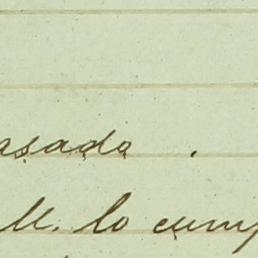 asado .
M. lo cump